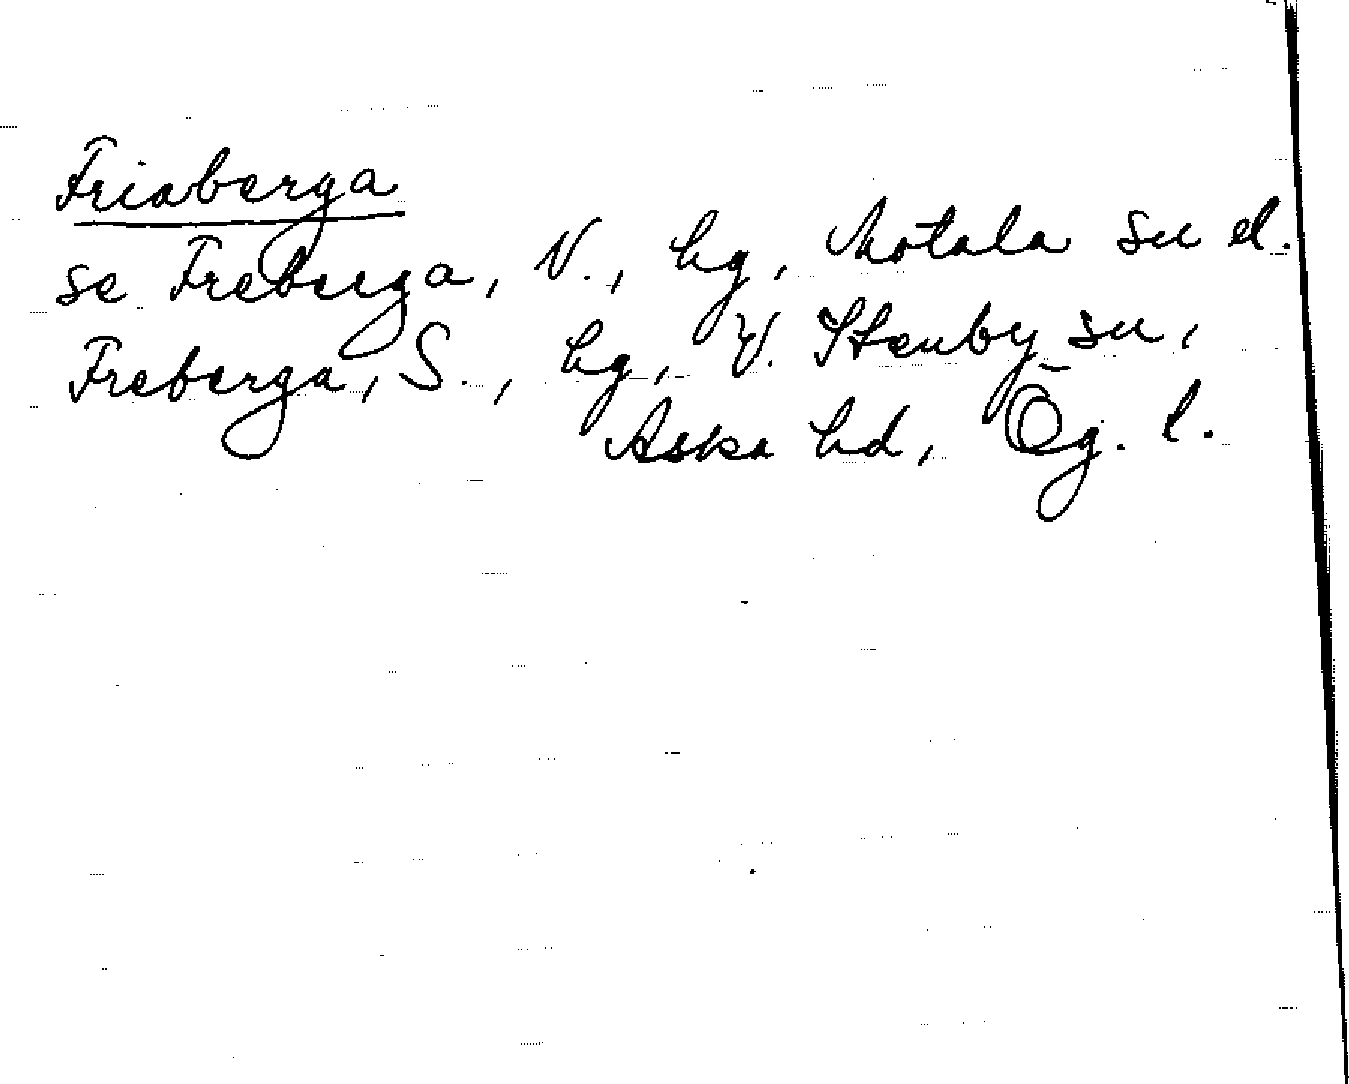 Friaberga
se Freberga, N., hg, Motala sn el.
Freberga, S., hg, V. Stenby sn,
Aska hd, Ög. l.